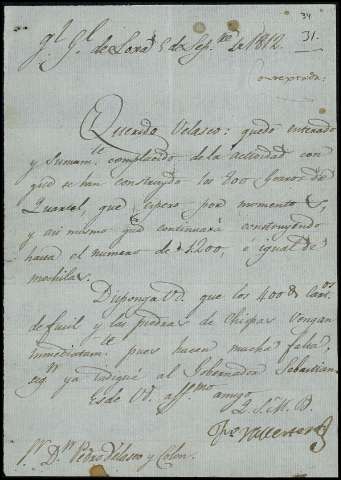 34
31.
Ql. Gl. de Lora 5 de Sepre. de 1812.
Correxpoda.
Querido Velasco: quedo enterado
y Sumamte. complacido de la actividad con
que se han construydo las 800 Gorras de
Quartel, que espero por momentos,
y asi mismo que continuará construyendo
hasta el numero de 1200, é igual de
mochilas.
Disponga Vd. que los 4000 Cartos.
de fusil y las piedras de Chispas vengan
immediatamte. pues hacen mucha falta,
sigun ya indiqué al Gobernador Sebastian.
Es de Vd. affmo. amigo
Q. S. M. B.
Sr. Dn. Pedro Velasco y Colon.